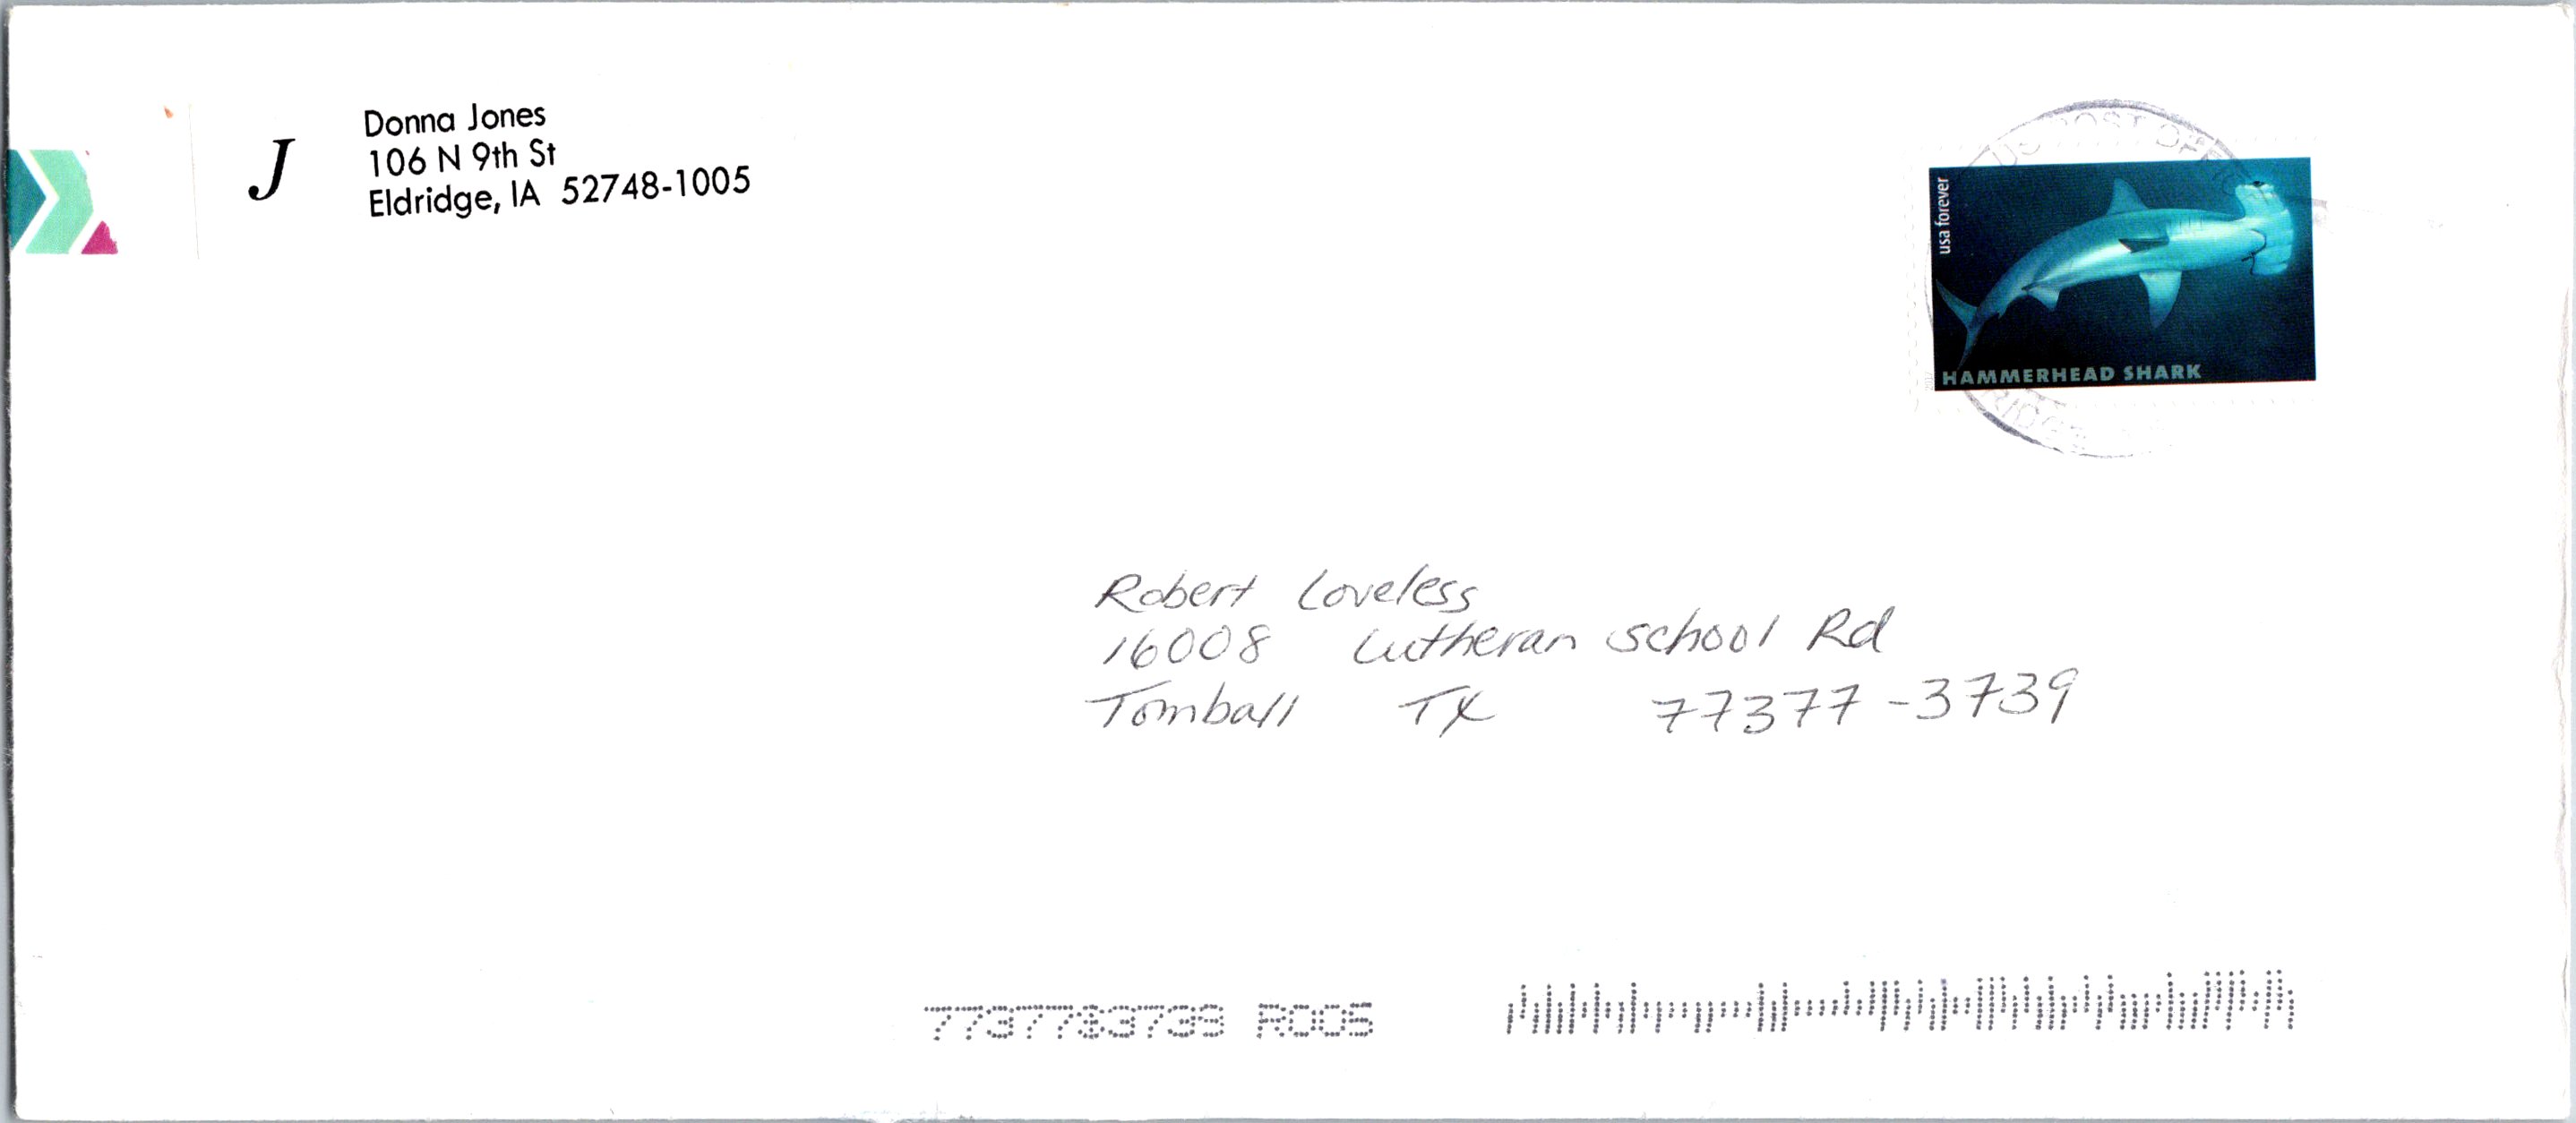 J
Donna Jones
106 N 9th St
Eldridge, IA 52748-1005
US POST OFFICE
usa forever
HAMMERHEAD SHARK
2017
Robert Loveless
16008 Lutheran School Rd
Tomball TX 77377-3739
7737783739 R005